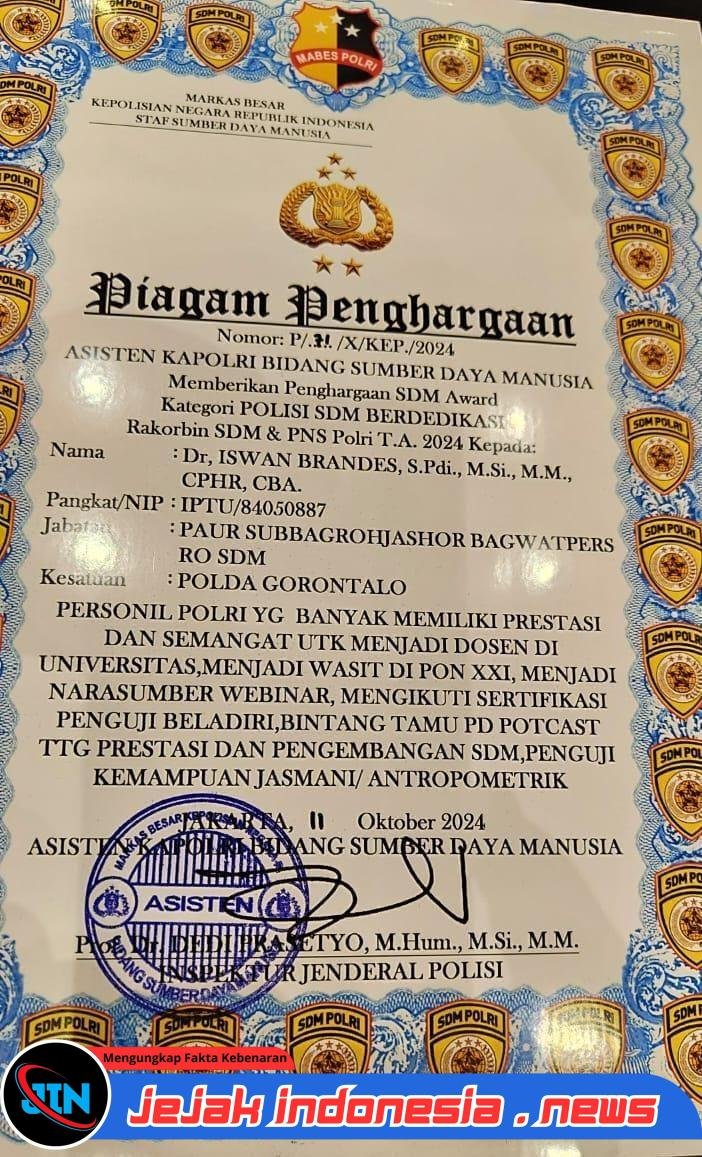 SDM POLRI
SDM POLRI
SDM POLRI
MABES POLRI
SDM POLRI
SDM POLRI
SDM POLRI
MARKAS BESAR
KEPOLISIAN NEGARA REPUBLIK INDONESIA
STAF SUMBER DAYA MANUSIA
Piagam Penghargaan
Nomor: P/.21. /X/KEP./2024
ASISTEN KAPOLRI BIDANG SUMBER DAYA MANUSIA
Memberikan Penghargaan SDM Award
Kategori POLISI SDM BERDEDIKASI
Rakorbin SDM & PNS Polri T.A. 2024 Kepada:
Nama : Dr, ISWAN BRANDES, S.Pdi., M.Si., M.M.,
CPHR, CBA.
Pangkat/NIP : IPTU/84050887
Jabatan : PAUR SUBBAGROHJASHOR BAGWATPERS
RO SDM
Kesatuan : POLDA GORONTALO
PERSONIL POLRI YG BANYAK MEMILIKI PRESTASI
DAN SEMANGAT UTK MENJADI DOSEN DI
UNIVERSITAS,MENJADI WASIT DI PON XXI, MENJADI
NARASUMBER WEBINAR, MENGIKUTI SERTIFIKASI
PENGUJI BELADIRI,BINTANG TAMU PD POTCAST
TTG PRESTASI DAN PENGEMBANGAN SDM,PENGUJI
KEMAMPUAN JASMANI/ ANTROPOMETRIK
JAKARTA, 11 Oktober 2024
ASISTEN KAPOLRI BIDANG SUMBER DAYA MANUSIA
ASISTEN
BIDANG SUMBER DAYA MANUSIA
Prof. Dr. DEDI PRASETYO, M.Hum., M.Si., M.M.
INSPEKTUR JENDERAL POLISI
SDM POLRI
SDM POLRI
SDM POLRI
SDM POLRI
SDM POLRI
Mengungkap Fakta Kebenaran
JTN
jejak indonesia . news